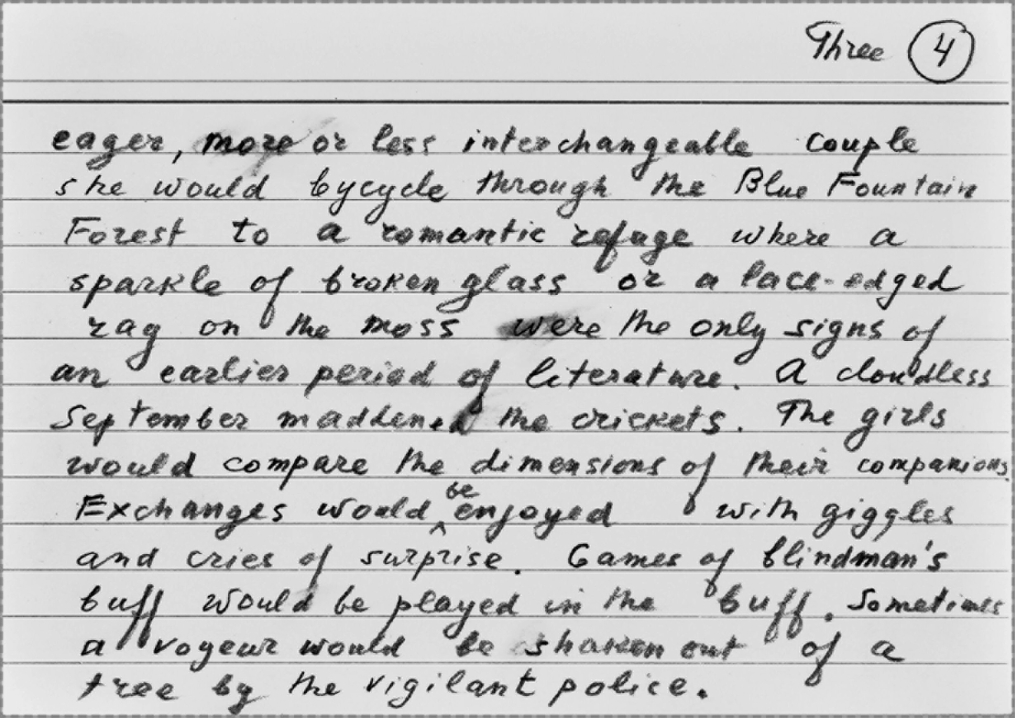 Three 4
eager, more or less interchangeable couple
she would bycycle through the Blue Fountain
Forest to a romantic refuge where a
sparkle of broken glass or a lace-edged
rag on the moss were the only signs of
an earlier period of literature. A cloudless
September maddened the crickets. The girls
would compare the dimensions of their companions.
Exchanges would be enjoyed with giggles
and cries of surprise. Games of blindman's
buff would be played in the buff. Sometimes
a voyeur would be shaken out of a
tree by the vigilant police.